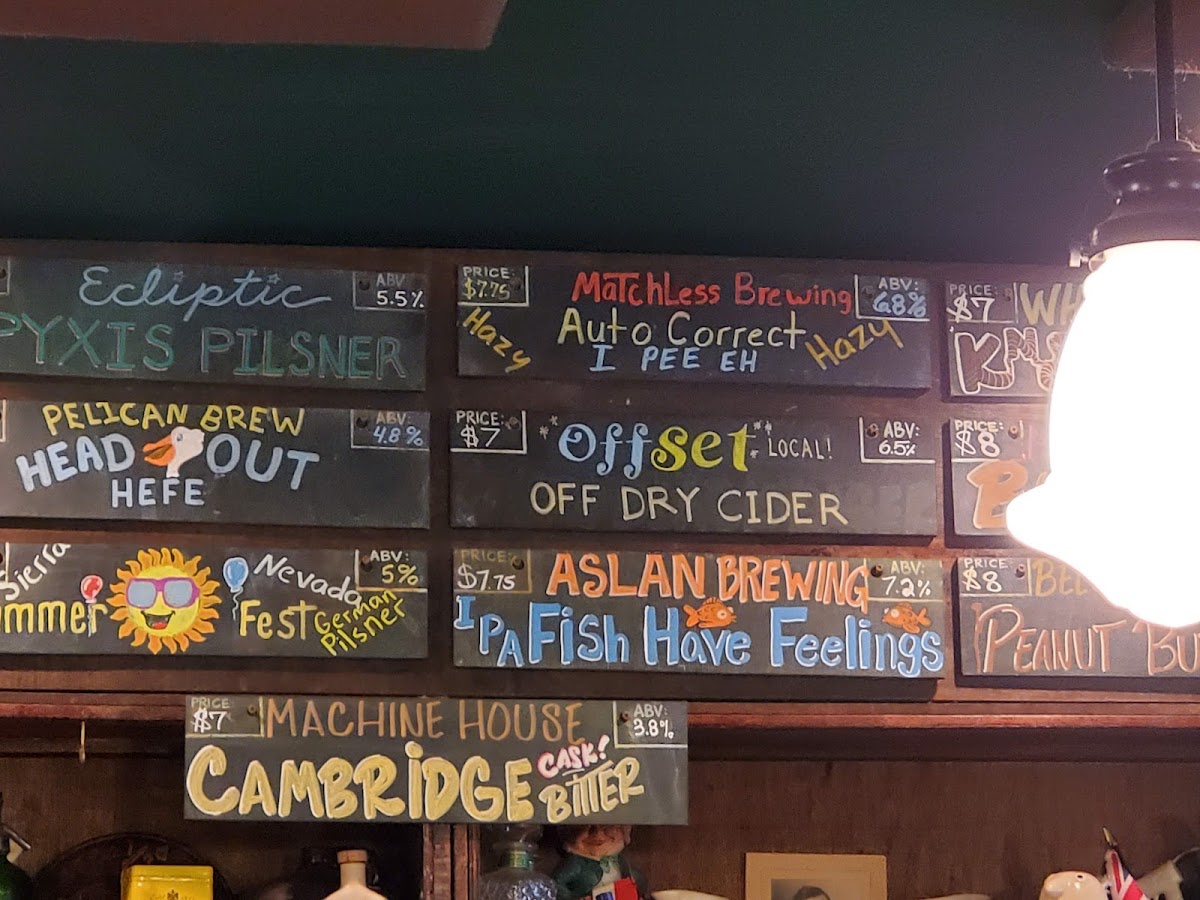 Ecliptic
ABV
5.5%
PYXIS PILSNER
PRICE:
$7.75
Matchless Brewing
ABV:
6.8%
Hazy
Auto Correct
Hazy
I PEE EH
PRICE:
$7
PELICAN BREW
ABV:
4.8%
HEAD OUT
HEFE
PRICE:
$7
Offset
LOCAL!
ABV:
6.5%
OFF DRY CIDER
PRICE:
$8
Sierra
Nevada
ABV:
5%
mmer
Fest
German
Pilsner
PRICE:
$7.75
ASLAN BREWING
ABV:
7.2%
IPA Fish Have Feelings
PRICE:
$8
BEL
PEANUT BU
PRICE
$7
MACHINE HOUSE
ABV:
3.8%
CAMBRIDGE
CASK!
BITTER